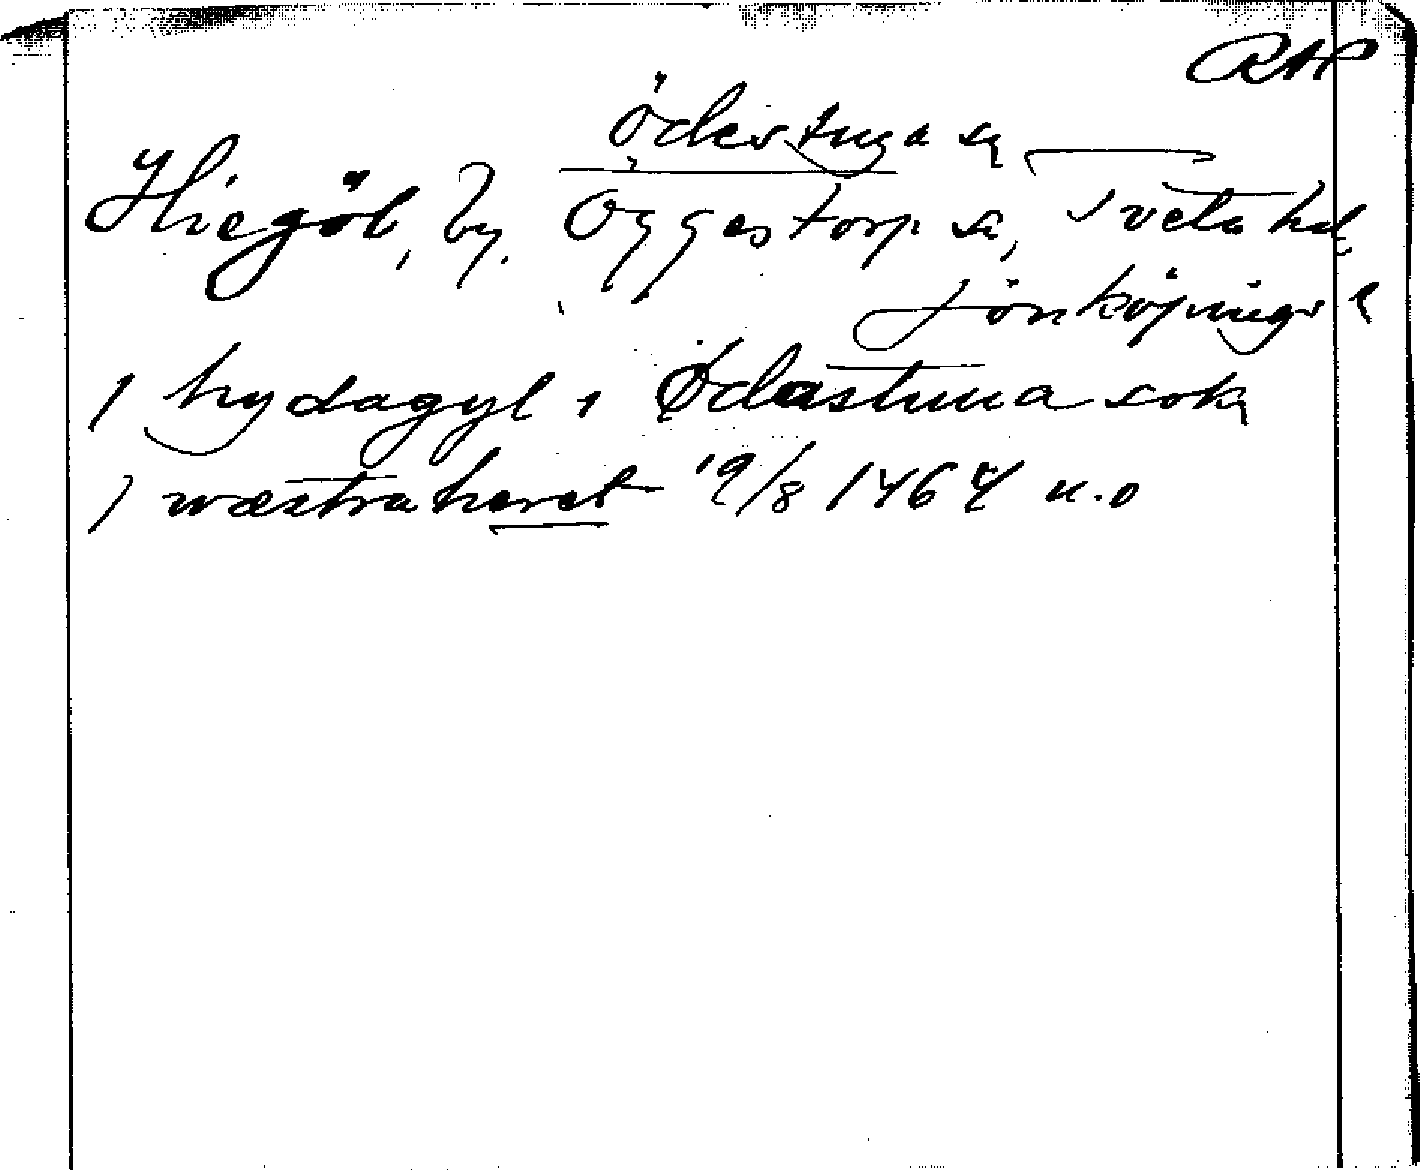 RAP
Ödestuga sn
Hiegöl, by. Oggestorp sn, Tveta hd
Jönköpings l
i hydagyl i Ødastuna sokn
i wæstra heret 19/8 1464 u.o